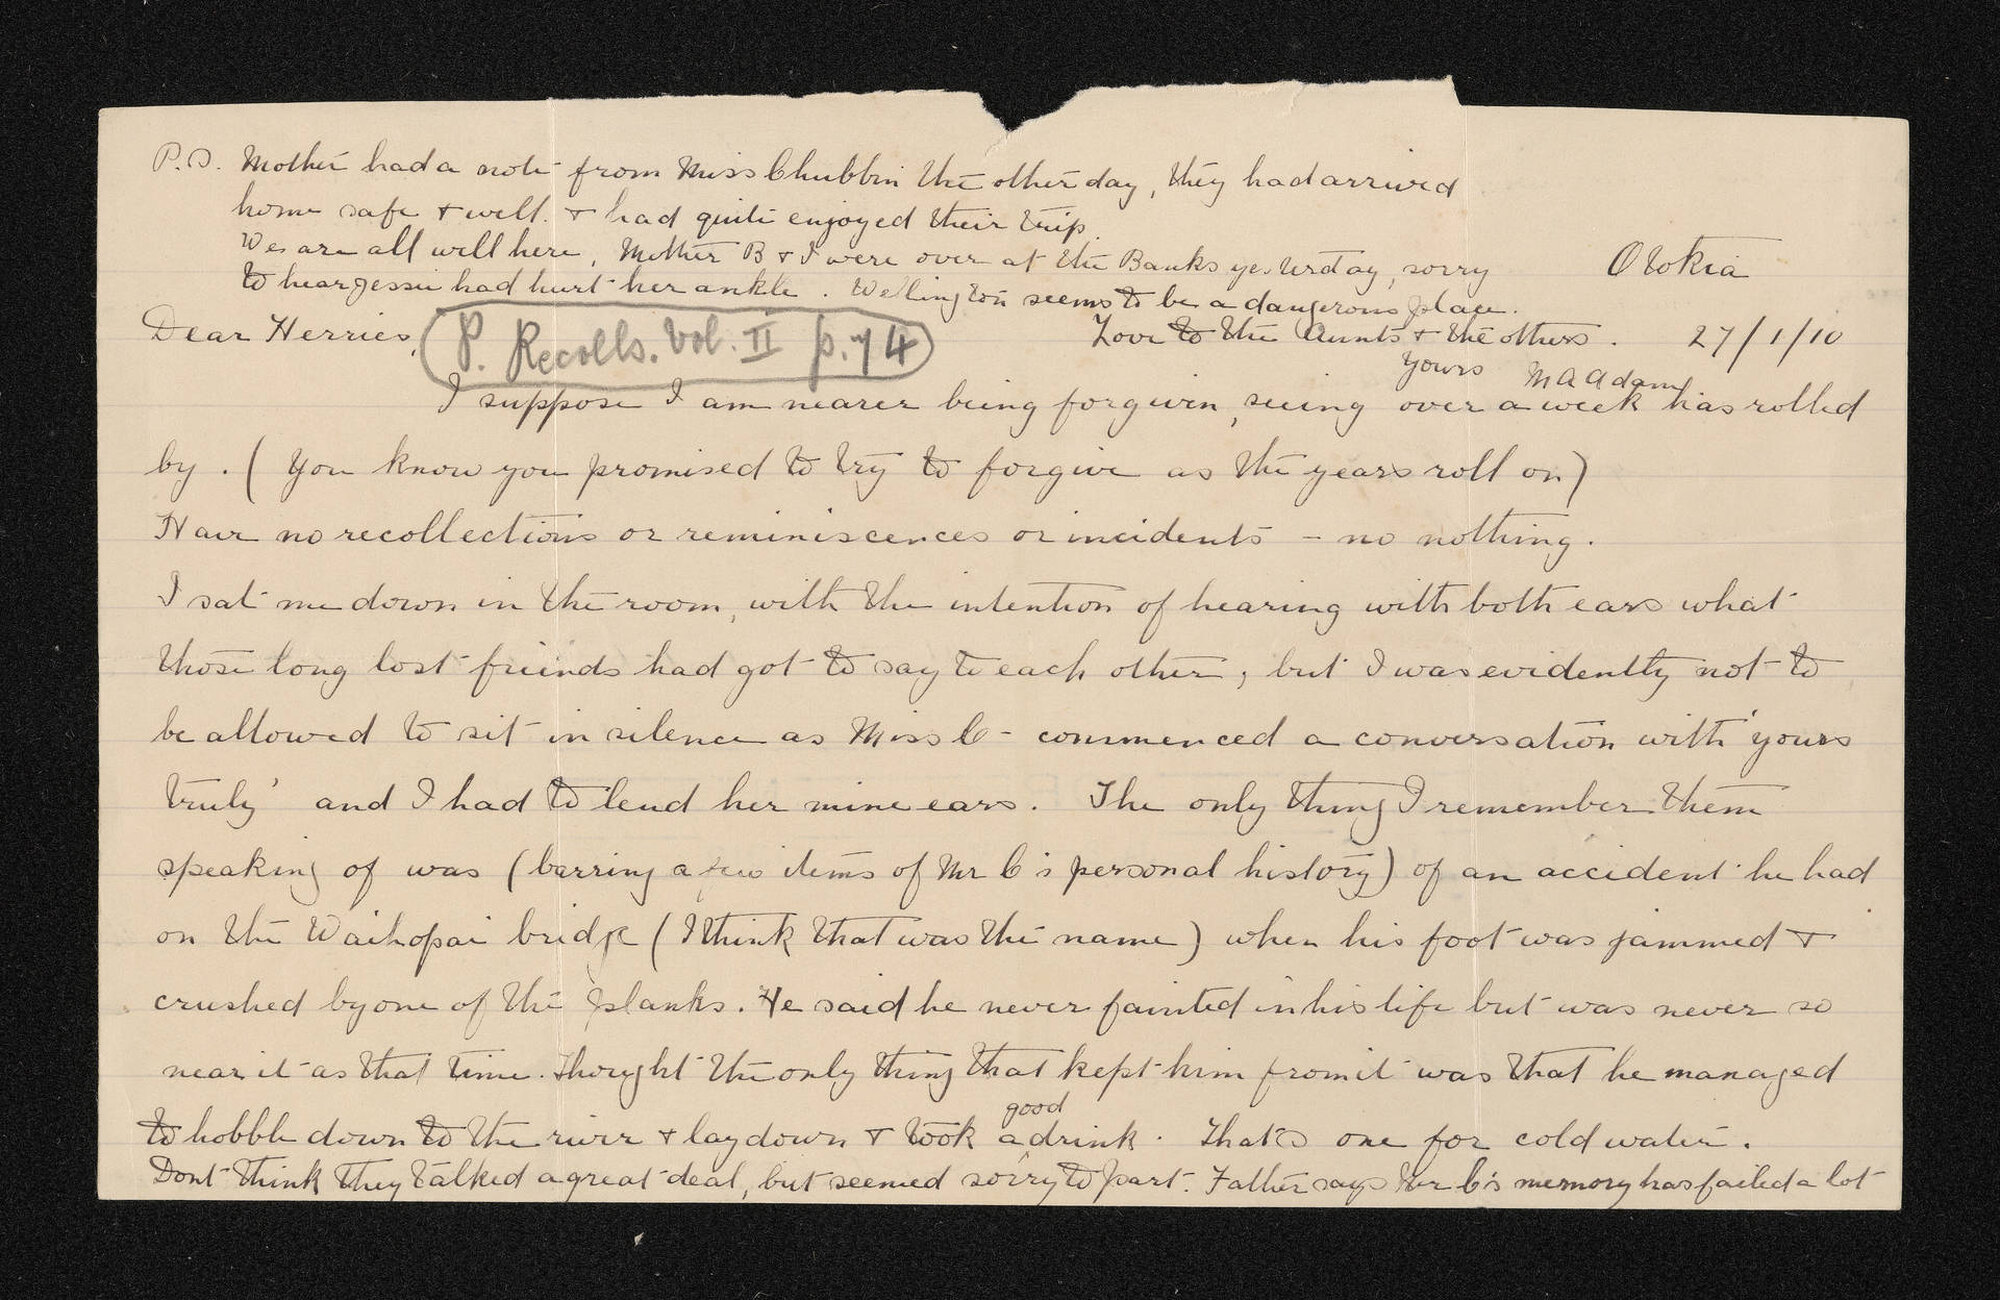 P.S. Mother had a note from Miss Chubbin the other day, they had arrived
home safe & well. & had quite enjoyed their trip.
We are all well here, Mother B & I were over at the Banks yesterday, sorry
to hear Jessie had hurt her ankle. Wellington seems to be a dangerous place.
Love to the Aunts & the others.
Yours M A Adam
Otokia
27/1/10
Dear Herries,
P. Recolls. Vol. II p. 74
I suppose I am nearer being forgiven, seeing over a week has rolled
by. (You know you promised to try to forgive as the years roll on)
Have no recollections or reminiscences or incidents - no nothing.
I sat me down in the room, with the intention of hearing with both ears what
those long lost friends had got to say to each other, but I was evidently not to
be allowed to sit in silence as Miss C- commenced a conversation with 'yours
truly' and I had to lend her mine ears. The only thing I remember them
speaking of was (barring a few items of Mr C's personal history) of an accident he had
on the Waihopai bridge (I think that was the name) when his foot was jammed &
crushed by one of the planks. He said he never fainted in his life but was never so
near it as that time. Thought the only thing that kept him from it was that he managed
to hobble down to the river & lay down & took a good drink. That's one for cold water.
Dont think they talked a great deal, but seemed sorry to part. Father says Mr C's memory has failed a lot